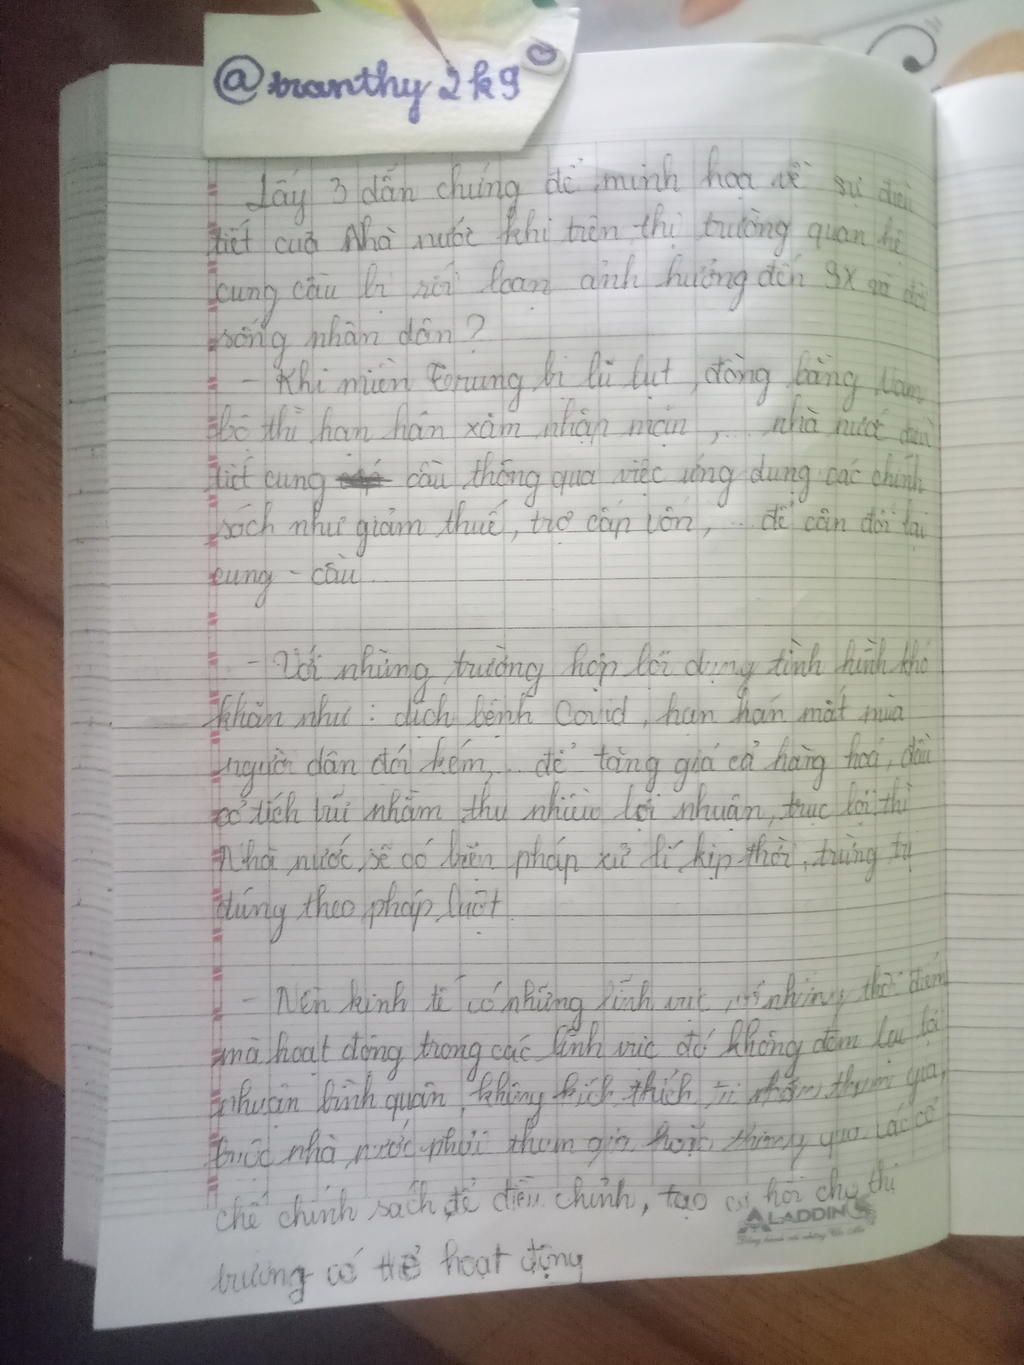 @tranthy2k9
Lấy 3 dẫn chứng để minh họa về sự điều
tiết của Nhà nước khi trên thị trường quan hệ
cung cầu bị rối loạn ảnh hưởng đến SX và đời
sống nhân dân?
- Khi miền Trung bị lũ lụt, đồng bằng Nam
bộ thì hạn hán xâm nhập mặn, ... nhà nước điều
tiết cung cầu thông qua việc ứng dụng các chính
sách như giảm thuế, trợ cấp vốn, ... để cân đối lại
cung - cầu.
- Với những trường hợp lợi dụng tình hình khó
khăn như: dịch bệnh Covid, hạn hán mất mùa
người dân đói kém, ... để tăng giá cả hàng hoá, đầu
cơ tích trữ nhằm thu nhiều lợi nhuận, trục lợi thì
Nhà nước sẽ có biện pháp xử lí kịp thời, trừng trị
đúng theo pháp luật.
- Nền kinh tế có những lĩnh vực, có những thời điểm
mà hoạt động trong các lĩnh vực đó không đem lại lợi
nhuận bình quân, không kích thích tư nhân tham gia,
buộc nhà nước phải tham gia hoặc thông qua các cơ
chế chính sách để điều chỉnh, tạo cơ hội cho thị
trường có thể hoạt động
ALADDIN